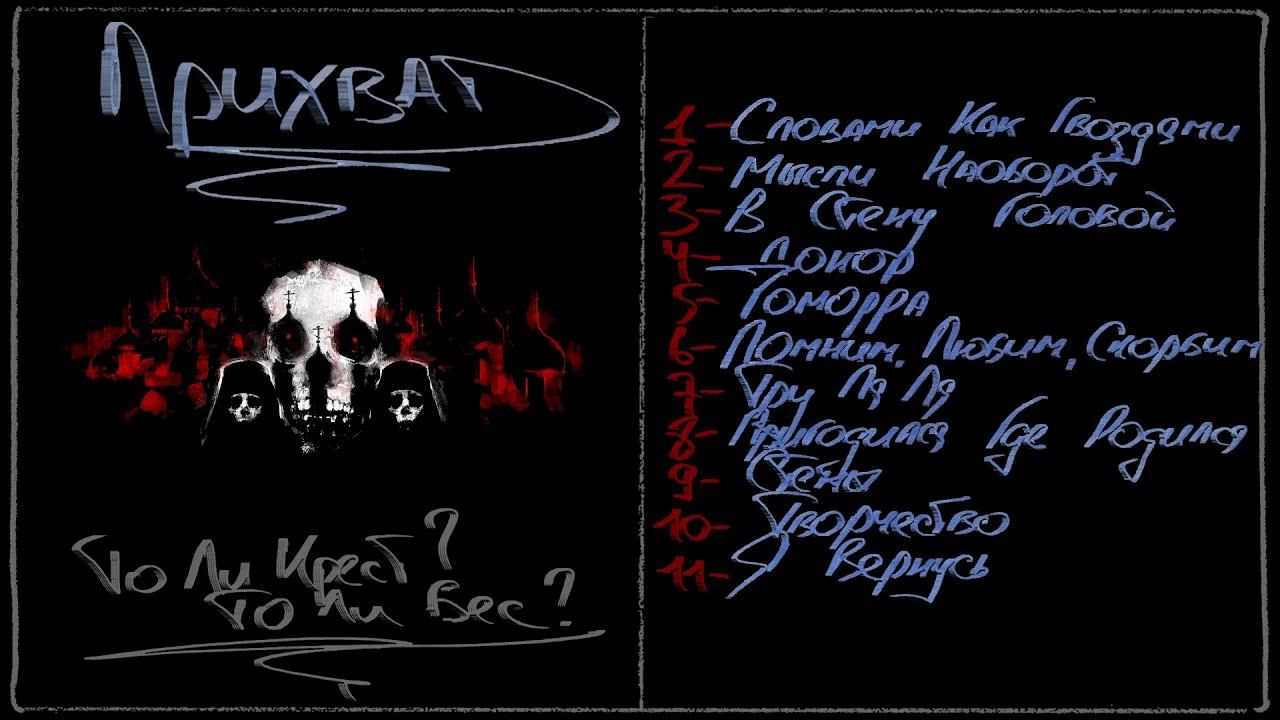 Прихват
То Ли Крест?
То Ли Бес?
1 - Словами Как Гвоздями
2 - Мысли Наоборот
3 - В Стену Головой
4 - Донор
5 - Гоморра
6 - Помним, Любим, Скорбим
7 - Тру Ля Ля
8 - Пригодился Где Родился
9 - Стены
10 - Творчество
11 - Я Вернусь